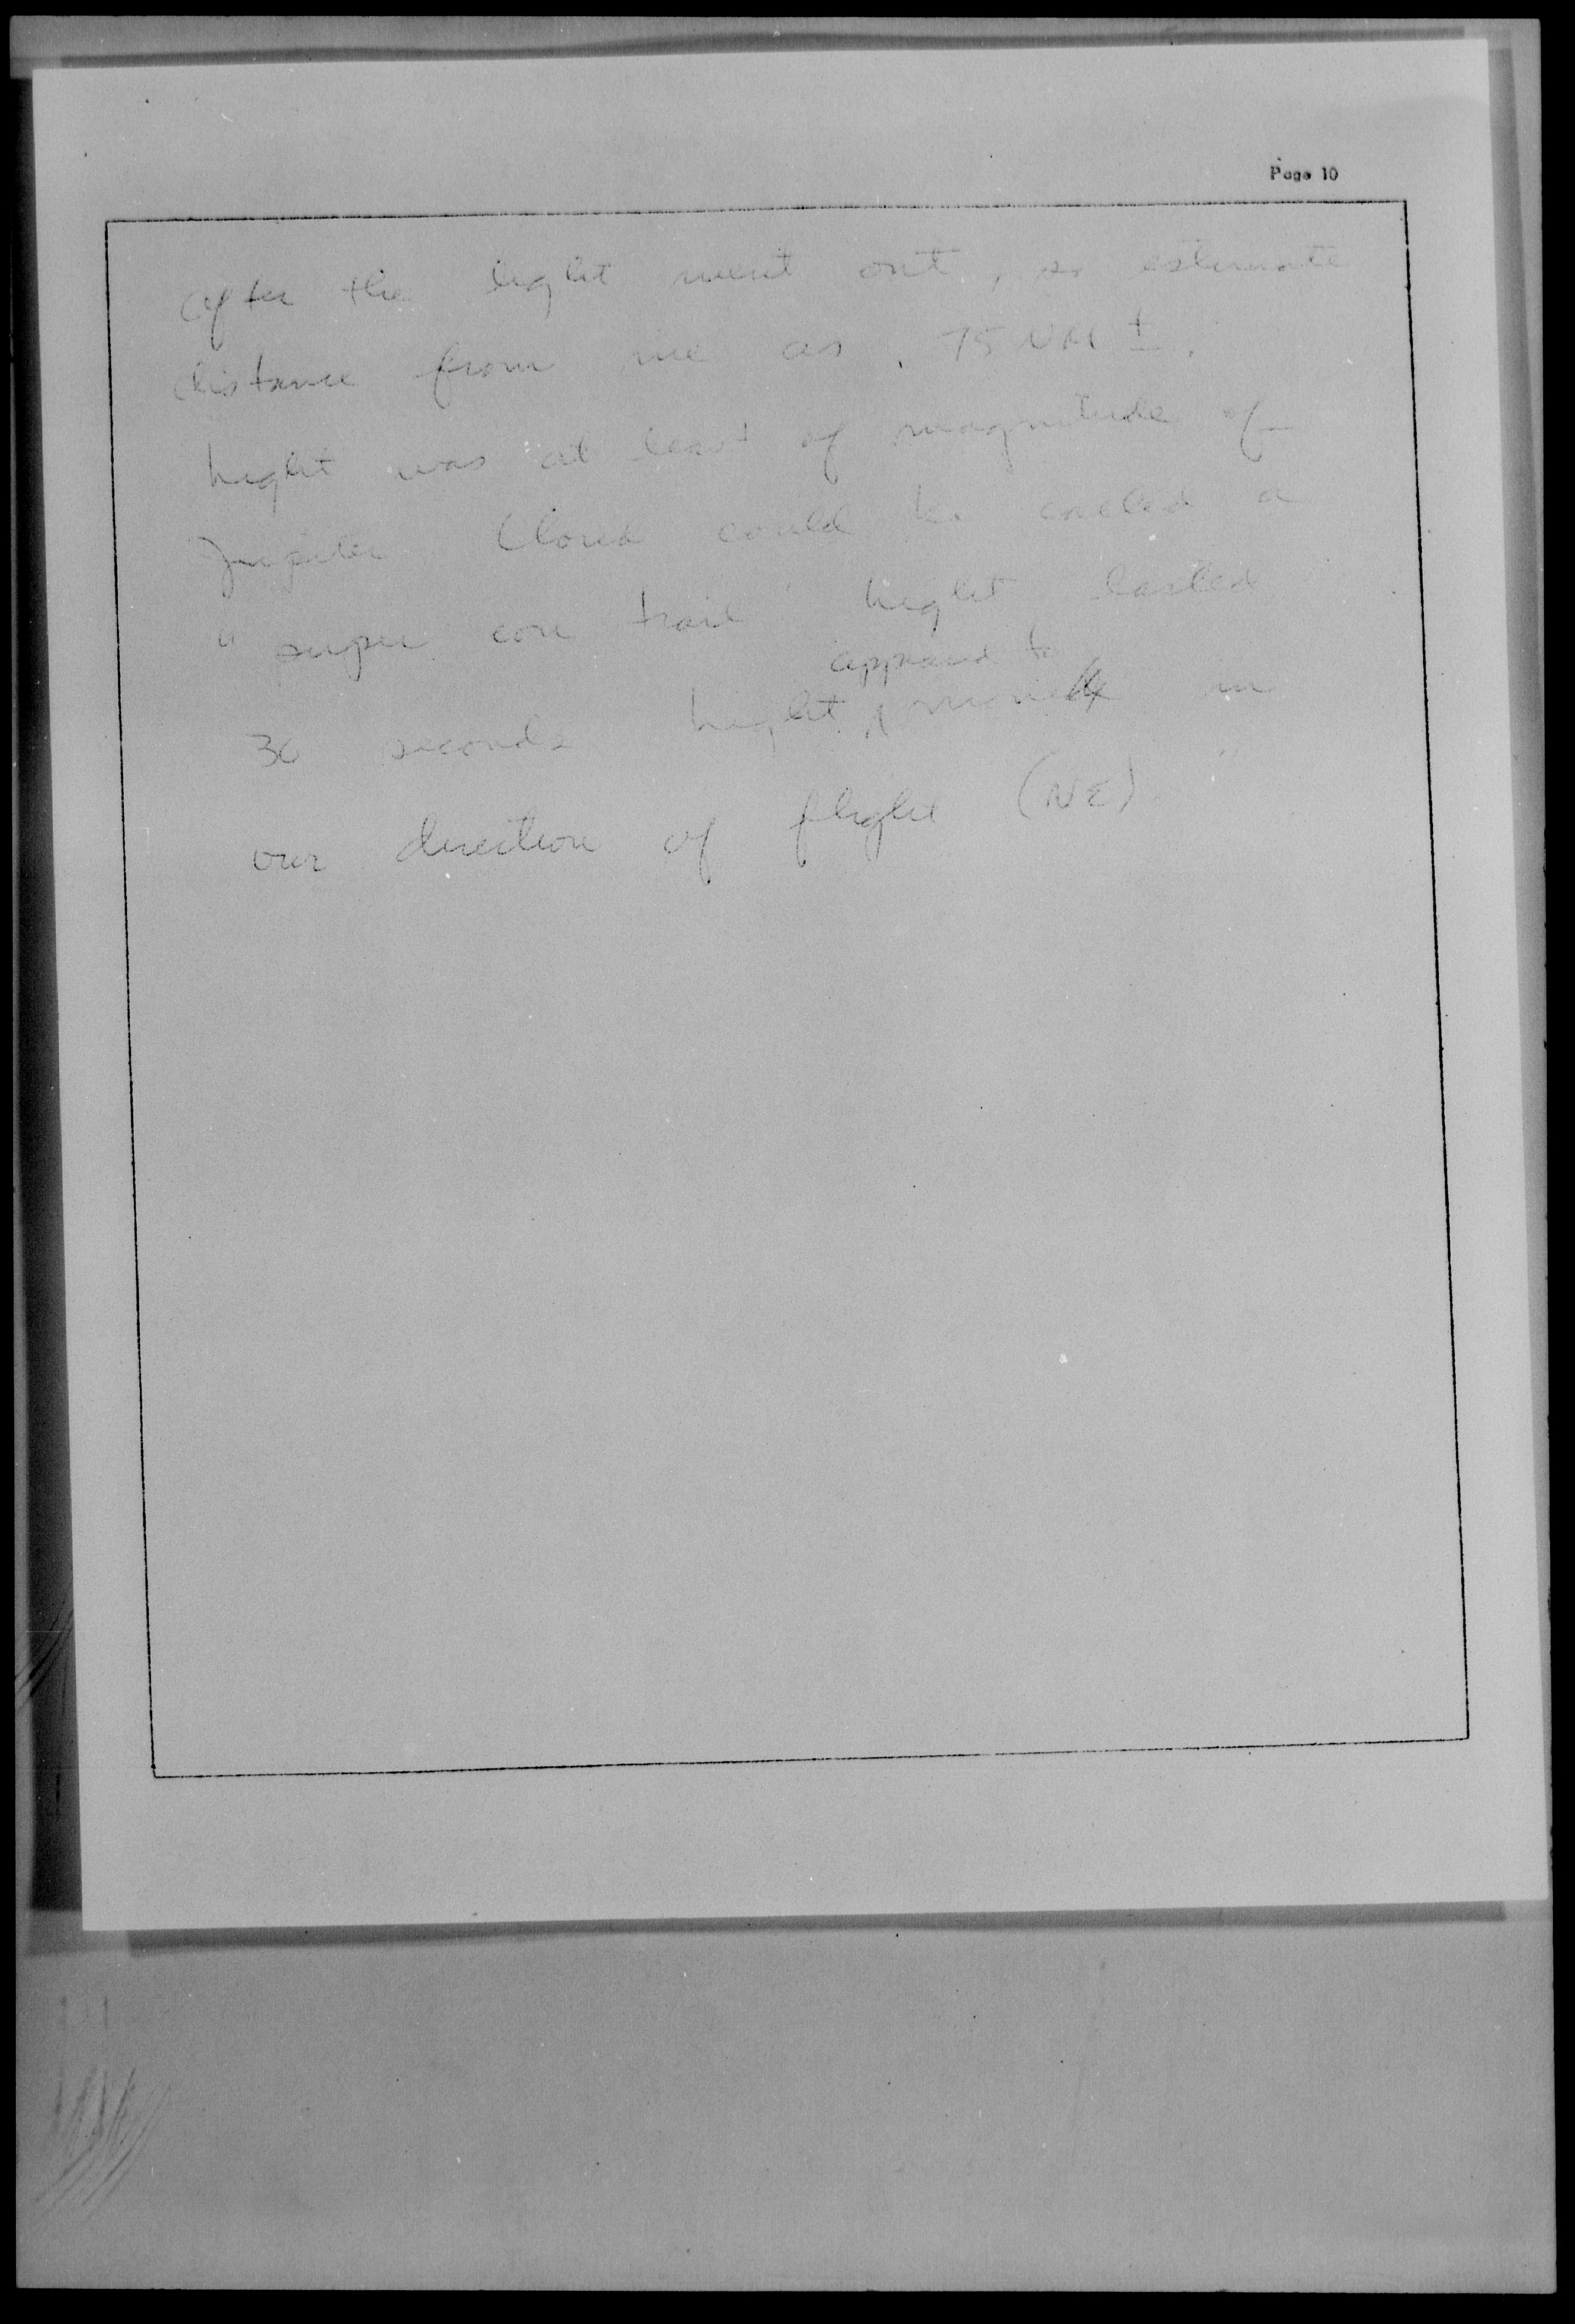 Page 10
after the light went out, so estimate
distance from me as 75 NM ±.
Light was at least of magnitude of
Jupiter Cloud could be called a
"super con trail" Light lasted
appeared to
30 seconds Light move in
our direction of flight (NE)